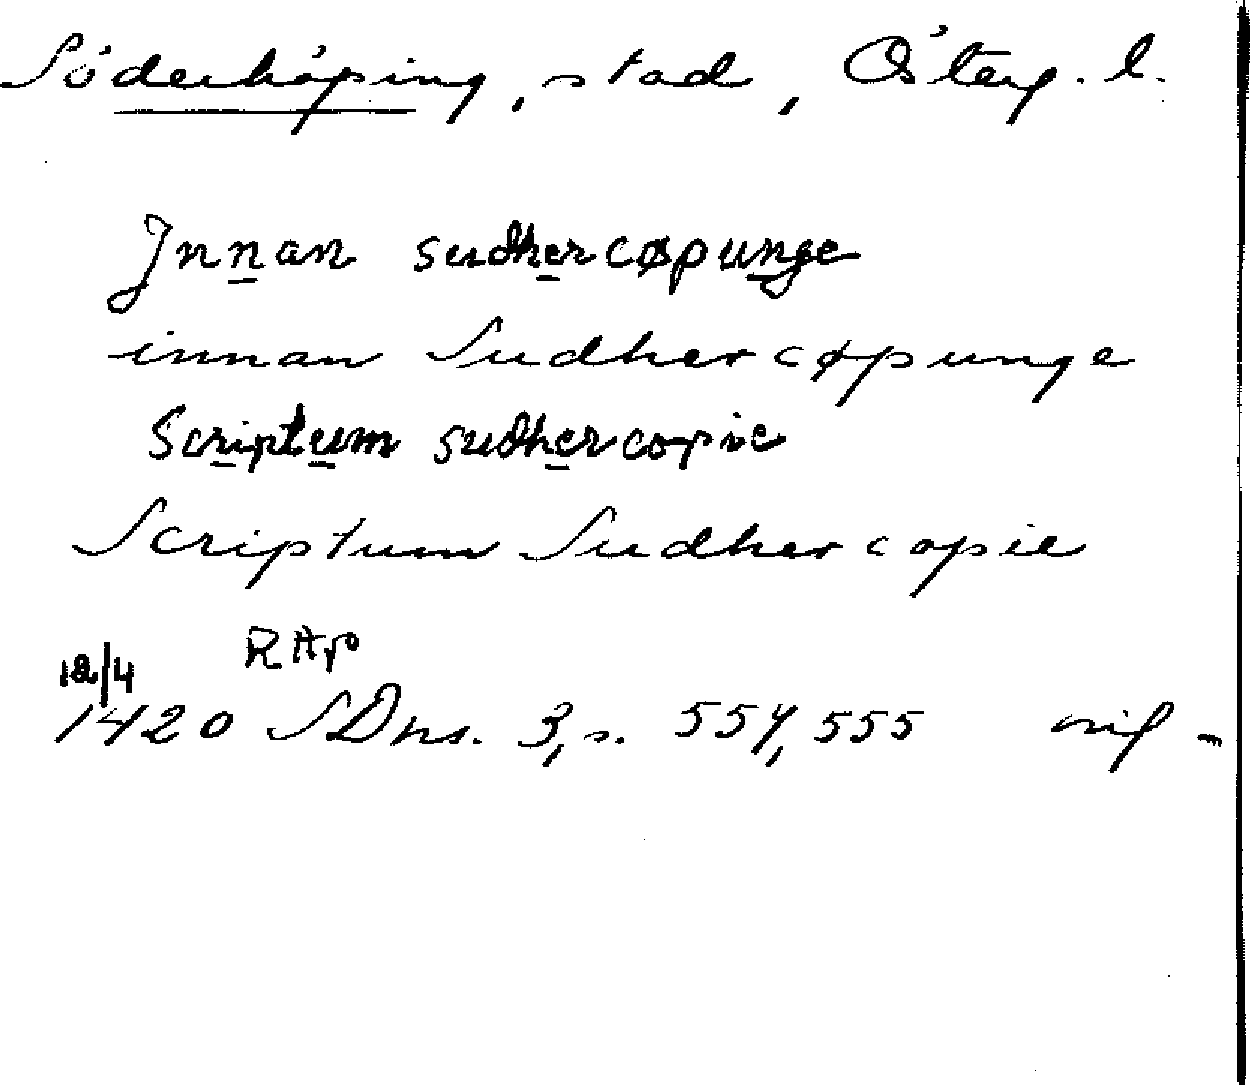 Söderköping, stad, Österg. l.
Jnnan sudhercøpunge
innan Sudhercøpunge
Scriptum sudhercopie
Scriptum Sudhercopie
12/4 RAp
1420 SDns. 3, s. 554, 555 orig -